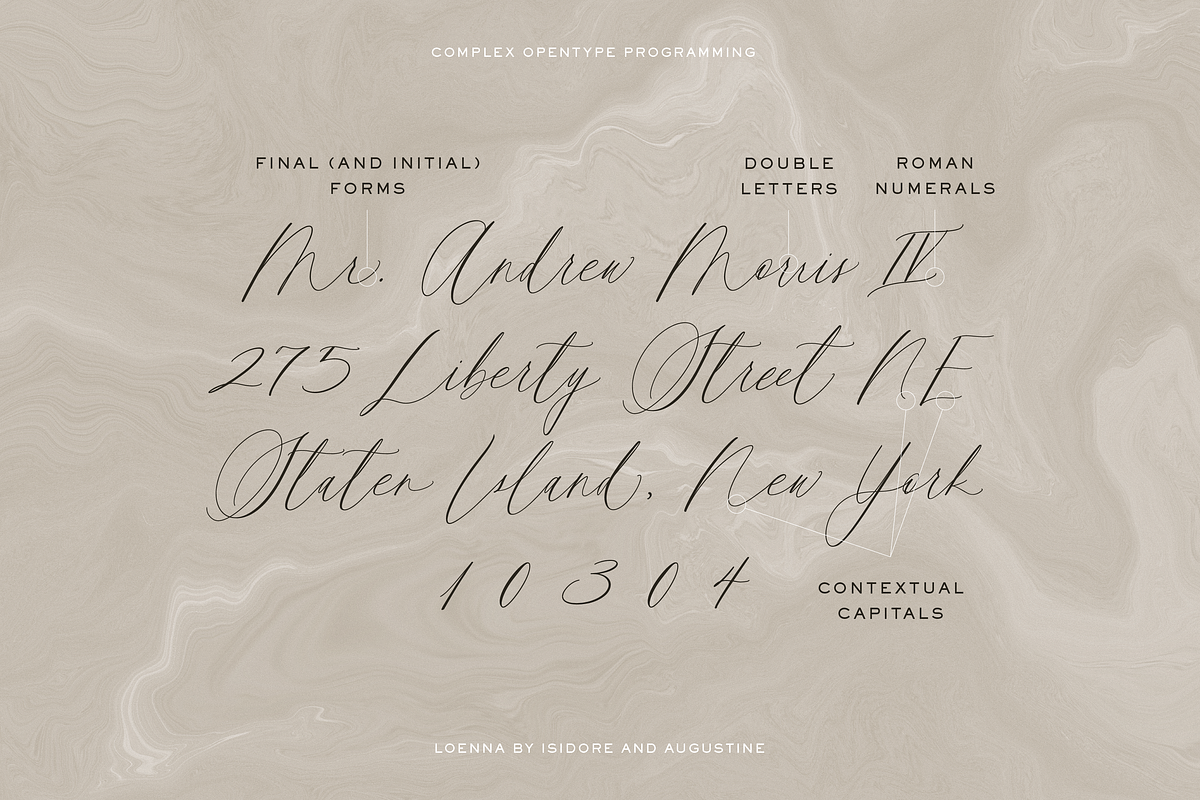 COMPLEX OPENTYPE PROGRAMMING
FINAL (AND INITIAL)
FORMS
DOUBLE
LETTERS
ROMAN
NUMERALS
Mr. Andrew Morris IV
275 Liberty Street NE
Staten Island, New York
10304
CONTEXTUAL
CAPITALS
LOENNA BY ISIDORE AND AUGUSTINE